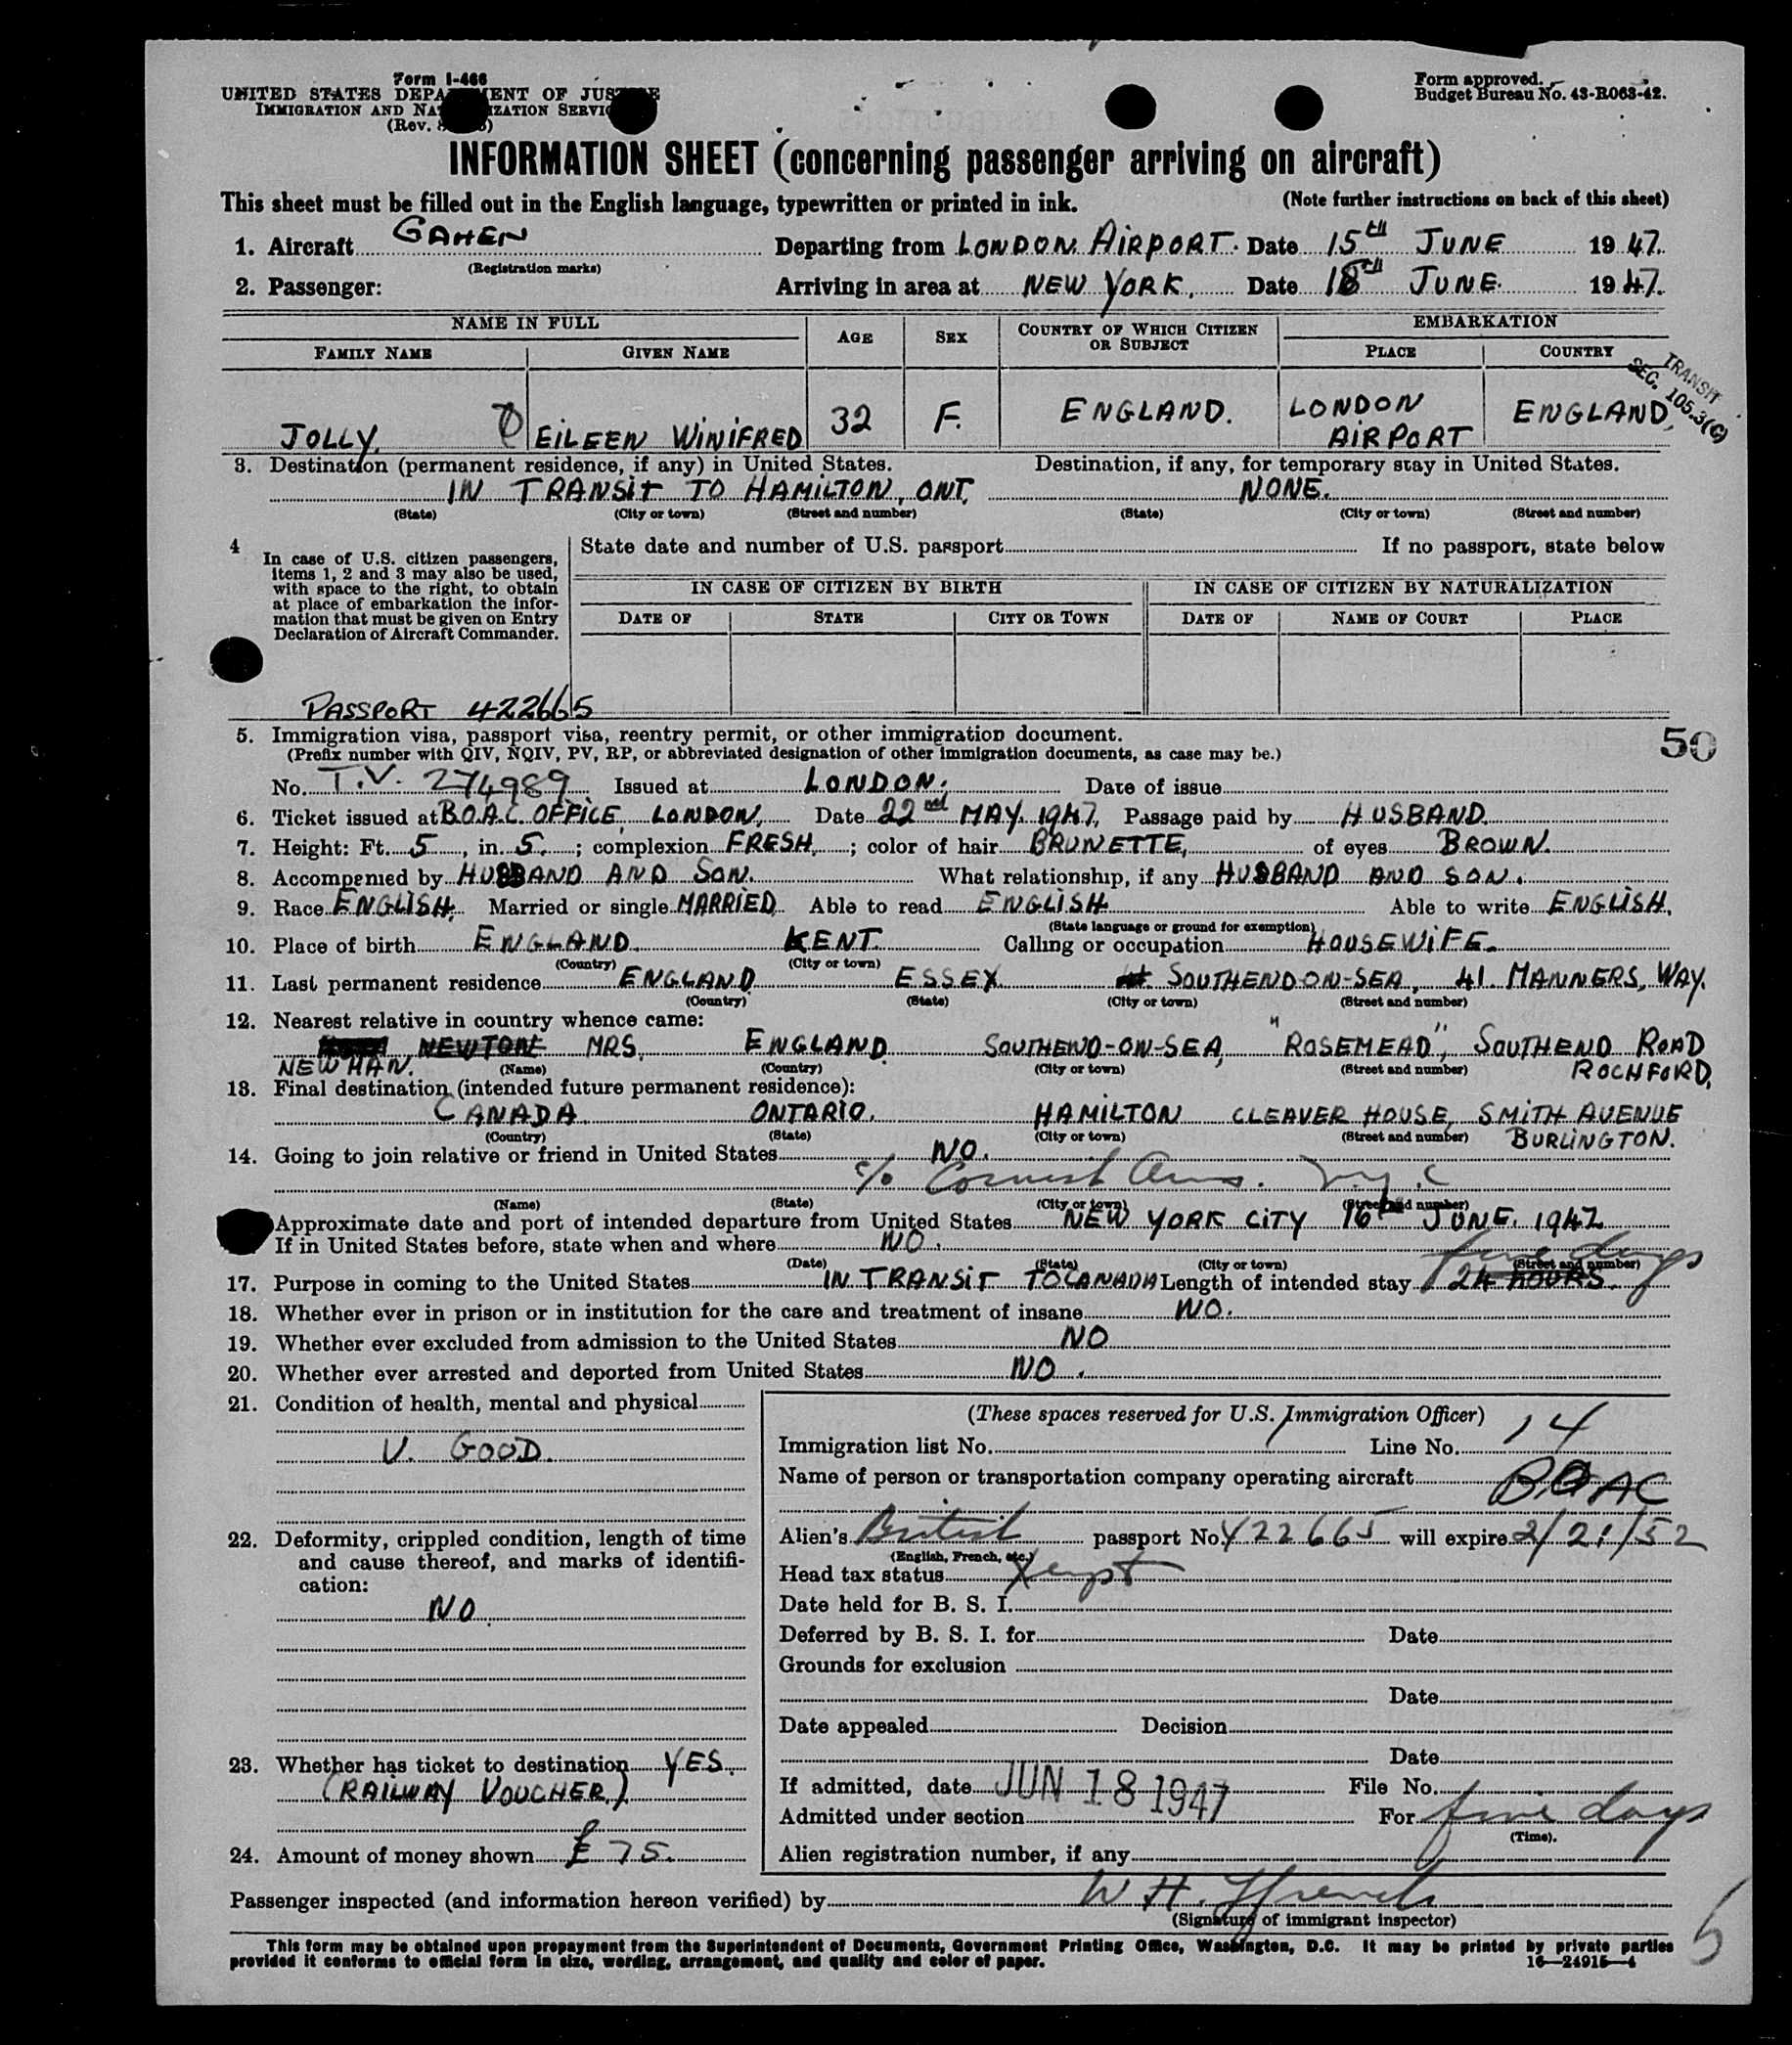 Form I-466
UNITED STATES DEPARTMENT OF JUSTICE
IMMIGRATION AND NATURALIZATION SERVICE
(Rev.
Form approved.
Budget Bureau No. 43-R063-42.
INFORMATION SHEET (concerning passenger arriving on aircraft)
This sheet must be filled out in the English language, typewritten or printed in ink. (Note further instructions on back of this sheet)
1. Aircraft GAHEN Departing from LONDON AIRPORT. Date 15th JUNE 1947.
(Registration marks)
2. Passenger: Arriving in area at NEW YORK, Date 18th JUNE. 1947.
NAME IN FULL AGE SEX COUNTRY OF WHICH CITIZEN OR SUBJECT EMBARKATION
FAMILY NAME GIVEN NAME PLACE COUNTRY
TRANSIT
SEC. 105.3(C)
JOLLY. EILEEN WINIFRED 32 F. ENGLAND. LONDON AIRPORT ENGLAND,
3. Destination (permanent residence, if any) in United States. Destination, if any, for temporary stay in United States.
IN TRANSIT TO HAMILTON, ONT. NONE.
(State) (City or town) (Street and number) (State) (City or town) (Street and number)
4 In case of U.S. citizen passengers, items 1, 2 and 3 may also be used, with space to the right, to obtain at place of embarkation the information that must be given on Entry Declaration of Aircraft Commander.
State date and number of U.S. passport If no passport, state below
IN CASE OF CITIZEN BY BIRTH IN CASE OF CITIZEN BY NATURALIZATION
DATE OF STATE CITY OR TOWN DATE OF NAME OF COURT PLACE
PASSPORT 422665
5. Immigration visa, passport visa, reentry permit, or other immigration document.
(Prefix number with QIV, NQIV, PV, RP, or abbreviated designation of other immigration documents, as case may be.)
50
No. T.V. 274989 Issued at LONDON. Date of issue
6. Ticket issued at B.O.A.C. OFFICE, LONDON, Date 22nd MAY. 1947, Passage paid by HUSBAND.
7. Height: Ft. 5, in. 5.; complexion FRESH.; color of hair BRUNETTE, of eyes BROWN.
8. Accompanied by HUSBAND AND SON. What relationship, if any HUSBAND AND SON.
9. Race ENGLISH. Married or single MARRIED Able to read ENGLISH Able to write ENGLISH.
(State language or ground for exemption)
10. Place of birth ENGLAND. KENT. Calling or occupation HOUSEWIFE.
(Country) (City or town)
11. Last permanent residence ENGLAND ESSEX SOUTHEND-ON-SEA, 41. MANNERS, WAY.
(Country) (State) (City or town) (Street and number)
12. Nearest relative in country whence came:
NEWTON MRS. ENGLAND. SOUTHEND-ON-SEA, "ROSEMEAD", SOUTHEND ROAD
NEWMAN. (Name) (Country) (City or town) (Street and number) ROCHFORD,
13. Final destination (intended future permanent residence):
CANADA. ONTARIO. HAMILTON CLEAVER HOUSE, SMITH AVENUE
(Country) (State) (City or town) (Street and number) BURLINGTON.
14. Going to join relative or friend in United States NO.
c/o Cornish Arms. N.Y.C
(Name) (State) (City or town) (Street and number)
Approximate date and port of intended departure from United States NEW YORK CITY 16th JUNE. 1947
If in United States before, state when and where NO.
(Date) (State) (City or town) (Street and number)
five days
17. Purpose in coming to the United States IN TRANSIT TO CANADA Length of intended stay 24 HOURS.
18. Whether ever in prison or in institution for the care and treatment of insane NO.
19. Whether ever excluded from admission to the United States NO
20. Whether ever arrested and deported from United States NO.
21. Condition of health, mental and physical
V. GOOD.
22. Deformity, crippled condition, length of time
and cause thereof, and marks of identifi-
cation:
NO.
23. Whether has ticket to destination YES.
(RAILWAY VOUCHER.)
24. Amount of money shown £ 75.
(These spaces reserved for U.S. Immigration Officer)
Immigration list No. Line No. 14
Name of person or transportation company operating aircraft BOAC
Alien's British passport No. 422665 will expire 2/21/52
(English, French, etc.)
Head tax status Xempt
Date held for B. S. I.
Deferred by B. S. I. for Date
Grounds for exclusion
Date
Date appealed Decision
Date
If admitted, date JUN 18 1947 File No.
Admitted under section For five days
(Time).
Alien registration number, if any
Passenger inspected (and information hereon verified) by W H.
(Signature of immigrant inspector)
This form may be obtained upon prepayment from the Superintendent of Documents, Government Printing Office, Washington, D.C. It may be printed by private parties
provided it conforms to official form in size, wording, arrangement, and quality and color of paper. 16—24915—4